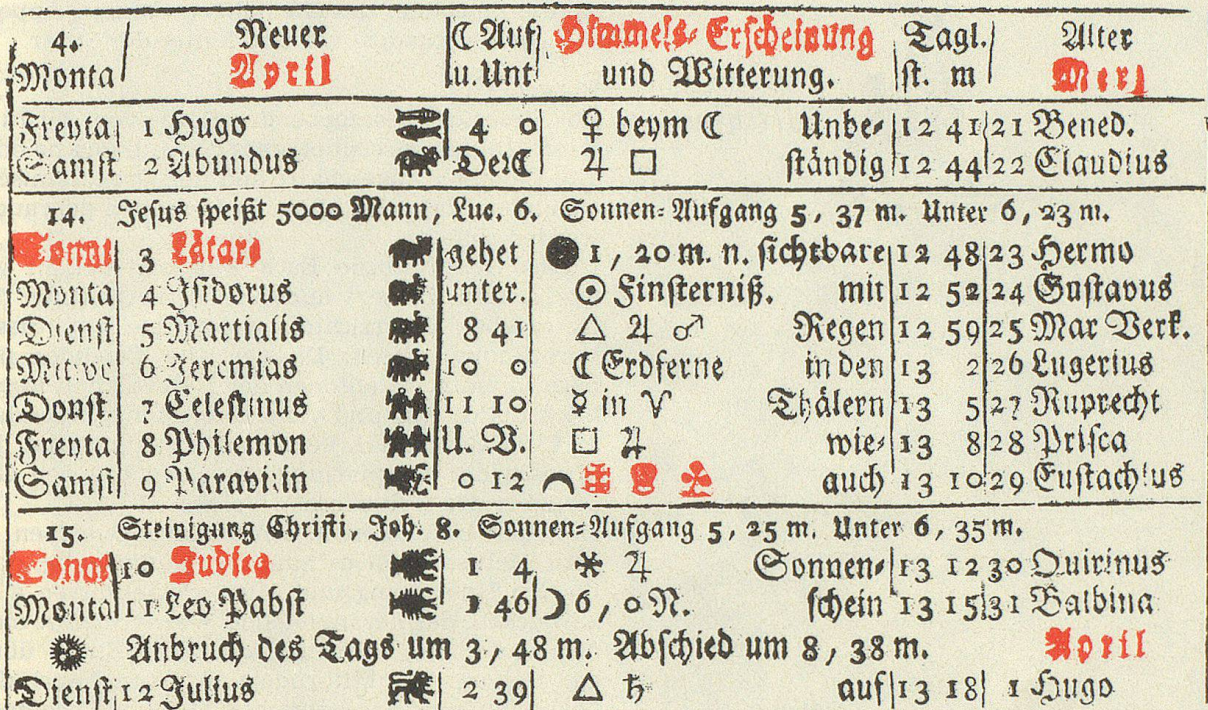 4. Neuer ☾ Auf Himmels-Erscheinung Tagl. Alter
Monta April u. Unt und Witterung. st. m Merz
Freyta 1 Hugo ♓ 4 0 ♀ beym ☾ Unbe- 12 41 21 Bened.
Samst 2 Abundus Der☾ ♃ □ ständig 12 44 22 Claudius
14. Jesus speißt 5000 Mann, Luc. 6. Sonnen-Aufgang 5, 37 m. Unter 6, 23 m.
Sonnt 3 Lätare gehet ● 1, 20 m. n. sichtbare 12 48 23 Hermo
Monta 4 Isidorus unter. ☉ Finsterniß. mit 12 52 24 Gustavus
Dienst 5 Martialis 8 41 △ ♃ ♂ Regen 12 59 25 Mar Verk.
Mitwo 6 Jeremias 10 0 ☾ Erdferne in den 13 2 26 Lugerius
Donst. 7 Celestinus 11 10 ☿ in ♈ Thälern 13 5 27 Ruprecht
Freyta 8 Philemon U. V. □ ♃ wie- 13 8 28 Prisca
Samst 9 Paravizin 0 12 auch 13 10 29 Eustachius
15. Steinigung Christi, Joh. 8. Sonnen-Aufgang 5, 25 m. Unter 6, 35 m.
Sonnt 10 Judica 1 4 ⚹ ♃ Sonnen- 13 12 30 Quirinus
Monta 11 Leo Pabst 1 46 ☽ 6, 0 N. schein 13 15 31 Balbina
Anbruch des Tags um 3, 48 m. Abschied um 8, 38 m. April
Dienst 12 Julius 2 39 △ ♄ auf 13 18 1 Hugo